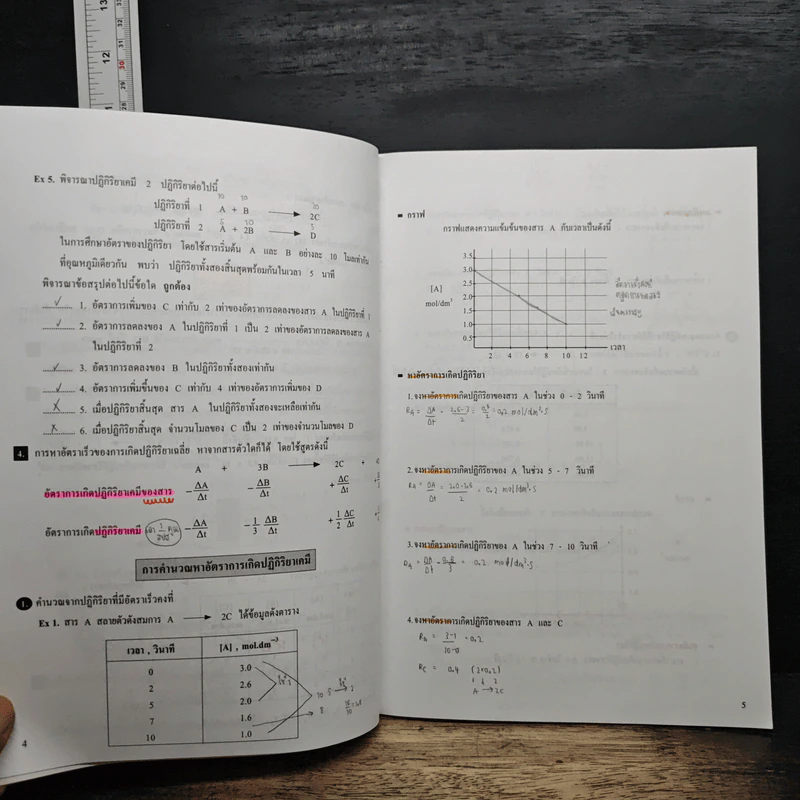 13
12
32
31
30
29
28
Ex 5. พิจารณาปฏิกิริยาเคมี 2 ปฏิกิริยาต่อไปนี้
10 10 10
ปฏิกิริยาที่ 1 A + B → 2C
5 10 5
ปฏิกิริยาที่ 2 A + 2B → D
ในการศึกษาอัตราของปฏิกิริยา โดยใช้สารเริ่มต้น A และ B อย่างละ 10 โมลเท่ากัน
ที่อุณหภูมิเดียวกัน พบว่า ปฏิกิริยาทั้งสองสิ้นสุดพร้อมกันในเวลา 5 นาที
พิจารณาข้อสรุปต่อไปนี้ข้อใด ถูกต้อง
✓ 1. อัตราการเพิ่มของ C เท่ากับ 2 เท่าของอัตราการลดลงของสาร A ในปฏิกิริยาที่ 1
✓ 2. อัตราการลดลงของ A ในปฏิกิริยาที่ 1 เป็น 2 เท่าของอัตราการลดลงของสาร A
ในปฏิกิริยาที่ 2
✓ 3. อัตราการลดลงของ B ในปฏิกิริยาทั้งสองเท่ากัน
✓ 4. อัตราการเพิ่มขึ้นของ C เท่ากับ 4 เท่าของอัตราการเพิ่มของ D
X 5. เมื่อปฏิกิริยาสิ้นสุด สาร A ในปฏิกิริยาทั้งสองจะเหลือเท่ากัน
X 6. เมื่อปฏิกิริยาสิ้นสุด จำนวนโมลของ C เป็น 2 เท่าของจำนวนโมลของ D
4. การหาอัตราเร็วของการเกิดปฏิกิริยาเฉลี่ย หาจากสารตัวใดก็ได้ โดยใช้สูตรดังนี้
A + 3B → 2C +
อัตราการเกิดปฏิกิริยาเคมีของสาร −ΔA/Δt −ΔB/Δt +ΔC/Δt
อัตราการเกิดปฏิกิริยาเคมี −ΔA/Δt −1/3 ΔB/Δt +1/2 ΔC/Δt
การคำนวณหาอัตราการเกิดปฏิกิริยาเคมี
1. คำนวณจากปฏิกิริยาที่มีอัตราเร็วคงที่
Ex 1. สาร A สลายตัวดังสมการ A → 2C ได้ข้อมูลดังตาราง
เวลา , วินาที [A] , mol.dm⁻³
0 3.0
2 2.6
5 2.0
7 1.6
10 1.0
4
กราฟ
กราฟแสดงความเข้มข้นของสาร A กับเวลาเป็นดังนี้
[A]
mol/dm³
3.5
3.0
2.5
2.0
1.5
1.0
0.5
2 4 6 8 10 12
เวลา
หาอัตราการเกิดปฏิกิริยา
1.จงหาอัตราการเกิดปฏิกิริยาของสาร A ในช่วง 0 - 2 วินาที
R_A = ΔA/Δt = 2.6-3/2 = 0.4/2 = 0.2 mol/dm³·s
2.จงหาอัตราการเกิดปฏิกิริยาของ A ในช่วง 5 - 7 วินาที
R_A = ΔA/Δt = 2.0-1.6/2 = 0.2 mol/dm³·s
3.จงหาอัตราการเกิดปฏิกิริยาของ A ในช่วง 7 - 10 วินาที
0.2 mol/dm³·s
4.จงหาอัตราการเกิดปฏิกิริยาของสาร A และ C
R_A = 3-1/10-0 = 0.2
R_C = 0.4 (2×0.2)
A → 2C
5